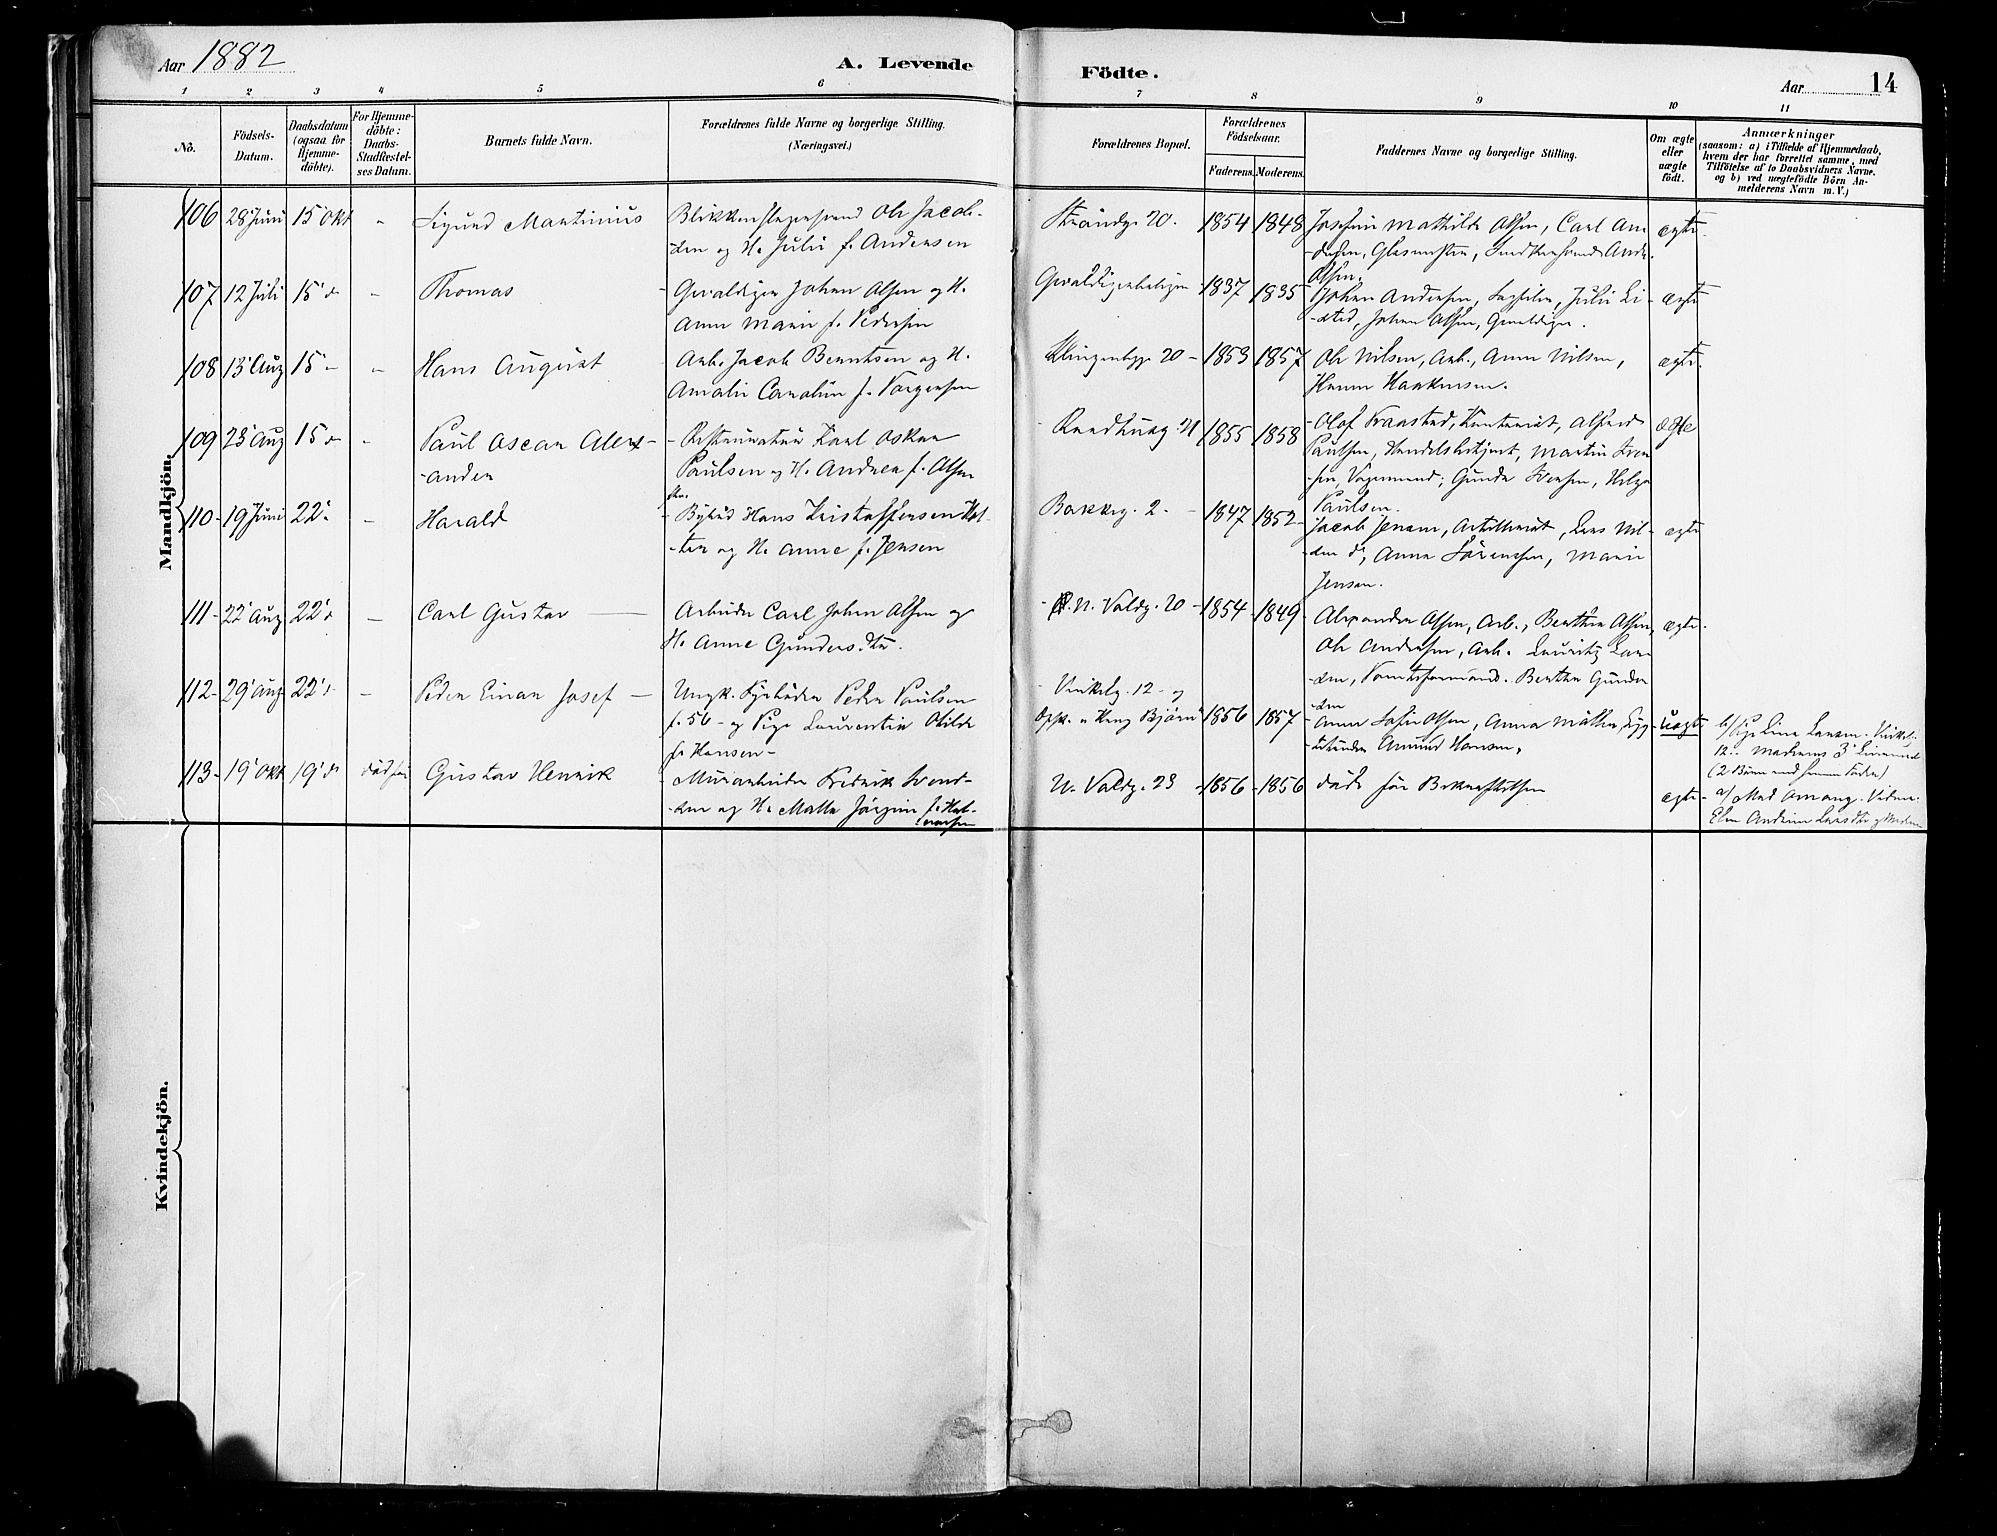 Aar 1882
A. Levende
Födte.
Aar
14
1 2 3 4 5 6 7 8 9 10 11
No.
Födsels-
Datum.
Daabsdatum
(ogsaa for
Hjemme-
döbte).
For Hjemme-
döbte:
Daabs-
Stadfæstel-
ses Datum.
Barnets fulde Navn.
Forældrenes fulde Navne og borgerlige Stilling.
(Næringsvei.)
Forældrenes Bopæl.
Forældrenes
Födselsaar.
Faderens. Moderens.
Faddernes Navne og borgerlige Stilling.
Om ægte
eller
uægte
födt.
Anmærkninger
(saasom: a) i Tilfælde af Hjemmedaab,
hvem der har forrettet samme, med
Tilföielse af to Daabsvidners Navne,
og b) ved uægtefödte Börn An-
melderens Navn m. V.)
Mandkjön.
106 28 Juni 15 Okt " Sigurd Martinius
Blikkenslagersvend Ole Jacob-
sen og H. Julie f. Andersen
Strandg. 20. 1854 1848
Josefine Mathilde Olsen, Carl An
dersen, Glasmester,
Olsen.
ægte.
107 12 Juli 15' " Thomas
Gevaldiger Johan Olsen og H.
Anne Marie f. Pedersen
1837 1835
Johan Andersen, Julie Li-
sted, Johan Olsen, Gevaldiger.
ægte
108 13' Aug 15' " Hans August
Arb. Jacob Berntsen og H.
Amalie Caroline f. Torgersen
20 1853 1857
Ole Nilsen, Arb., Anne Nilsen,
Hanna Haakensen.
ægte.
109 23' Aug 15 Paul Oscar Alex-
ander
Restauratør Karl Oskar
Paulsen og H. Andrea f. Olsen
21 1855 1858
Olaf Kranstad, Alfred
Paulsen, Handelsbetjent, Martin Iver
sen, Vognmand, Gunda Iversen, Helga
Paulsen.
ægte
110 19 Juni 22' Harald
Bybud Hans Kristoffersen Hol-
ter og H. Anne f. Jensen
Bakkeg. 2. 1847 1852
Jacob Jensen, Artillerist, Lars Nil-
sen do, Anna Sørensen, Marie
Jensen.
ægte
111 22' Aug 22' Carl Gustav
Arbeider Carl Johan Olsen og
H. Anne Gundersdtr.
N. Voldg. 20 1854 1849
Alexander Olsen, Arb., Berthe Olsen,
Ole Andersen, Arb. Lauritz Lar
sen, Tomteformand. Berthe Gunder
sen
ægte.
112 29' Aug 22' Peder Einar Josef
Ungk. Fyrbøder Peder Paulsen
f. 56 og Pige Laurentia Otilde
f. Hansen
Vinkelg. 12 og
1856 1857
Anne Sofie Olsen, Anna Mathea,
Amund Hansen.
uægte
b/ Pige Lina Larsen. Vinkelg.
12. Moderens 3'
(2 Børn med samme Fader)
113 19' Okt 19' død før Gustav Henrik
Murarbeider Fredrik Svend-
sen og H. Mathea Jørgine f. Hal-
vorsen
N. Voldg. 23 1856 1856
døde før Bekræftelsen
ægte
a/ Mad Amang. Vidner.
Elen Andrine Larsdtr og Moderen
Kvindekjön.